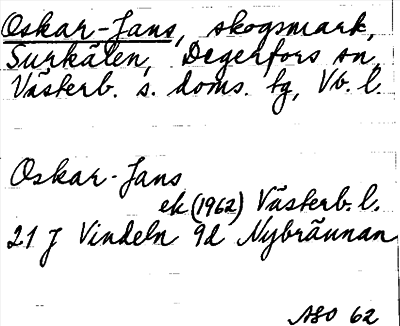 Oskar-Jans, skogsmark,
Surkälen, Degerfors sn,
Västerb. s. doms. tg, Vb. l.
Oskar-Jans
ek (1962) Västerb. l.
21 J Vindeln 9d Nybrännan
ASO 62